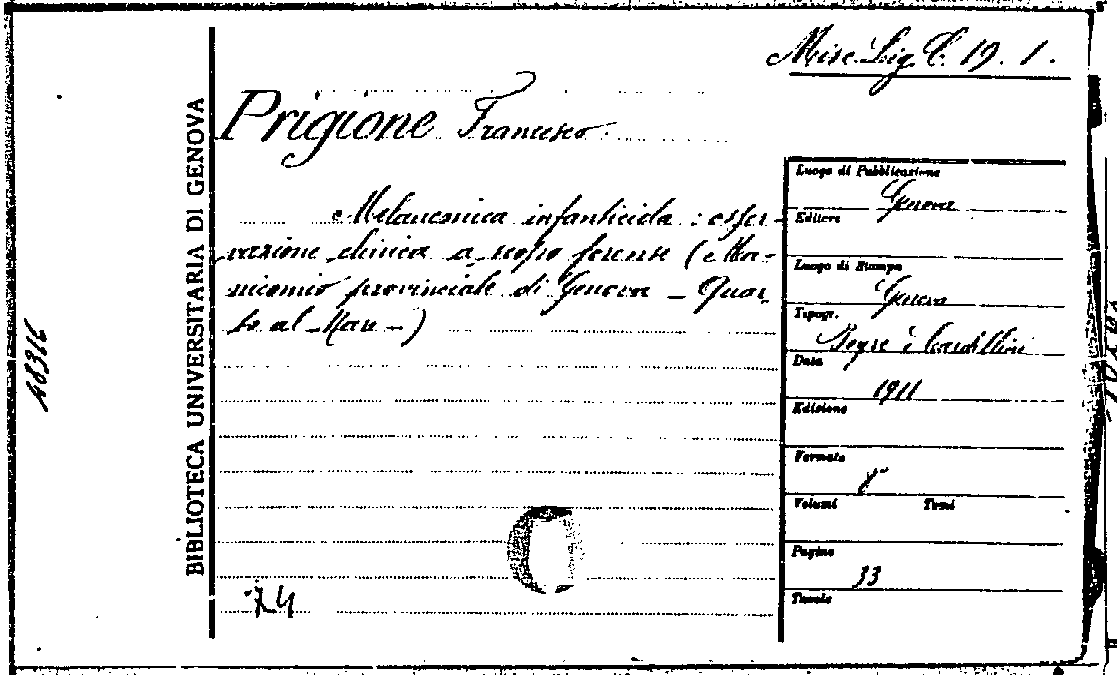 Misc. Lig. C. 19. 1.
BIBLIOTECA UNIVERSITARIA DI GENOVA
48316
Prigione Francesco
Melanconica infanticida : osser-
vazione clinica a scopo forense (Ma-
nicomio provinciale di Genova - Quar-
to al Mare -)
74
Luogo di Pubblicazione
Genova
Editore
Luogo di Stampa
Genova
Tipogr.
Data
1911
Edizione
Formato
8°
Volumi Tomi
Pagine
33
Tavole